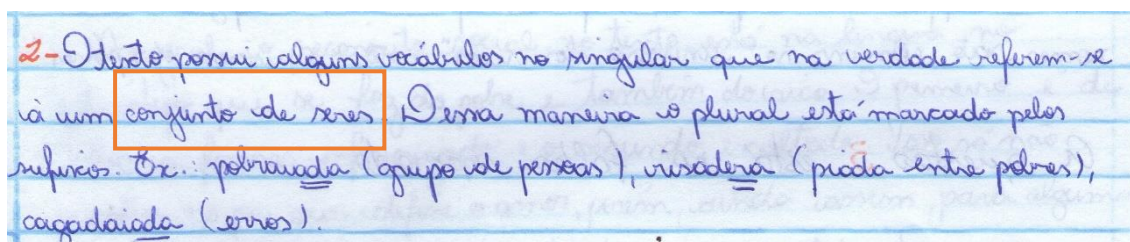 2- O texto possui alguns vocábulos no singular que na verdade referem-se
à um conjunto de seres. Dessa maneira o plural está marcado pelos
sufixos. Ex.: pobraiada (grupo de pessoas), risadera (piada entre pobres),
cagadaiada (erros).